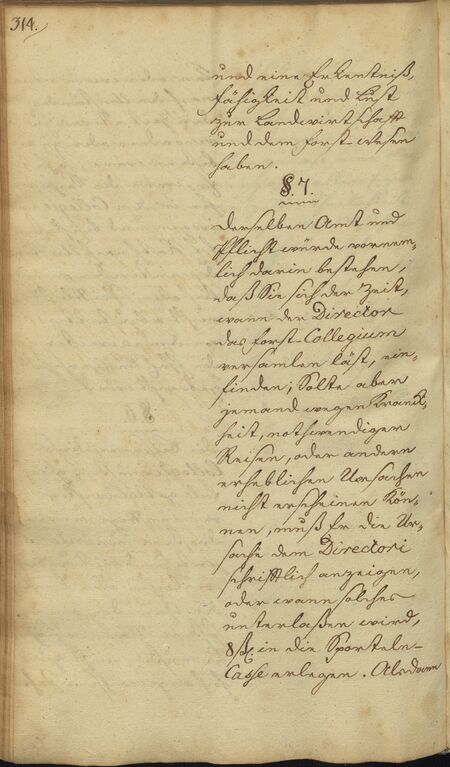 314.
und eine Erkentniß,
Fähigkeit und Lust
zur Landwirtschafft
und dem Forst-Wesen
haben.
§. 7.
Derselben Amt und
Pflicht würde vornem-
lich darin bestehen,
daß Sie sich der Zeit,
wann der Director
das Forst-Collegium
versamlen läst, ein-
finden; Solte aber
jemand wegen Kranck-
heit, nothwendiger
Reisen, oder andern
erheblichen Ursachen
nicht erscheinen kön-
nen, muß Er die Ur-
sache dem Directori
schrifftlich anzeigen,
oder wann solches
unterlaßen wird,
in die Sporteln-
Casse erlegen. Alsdann